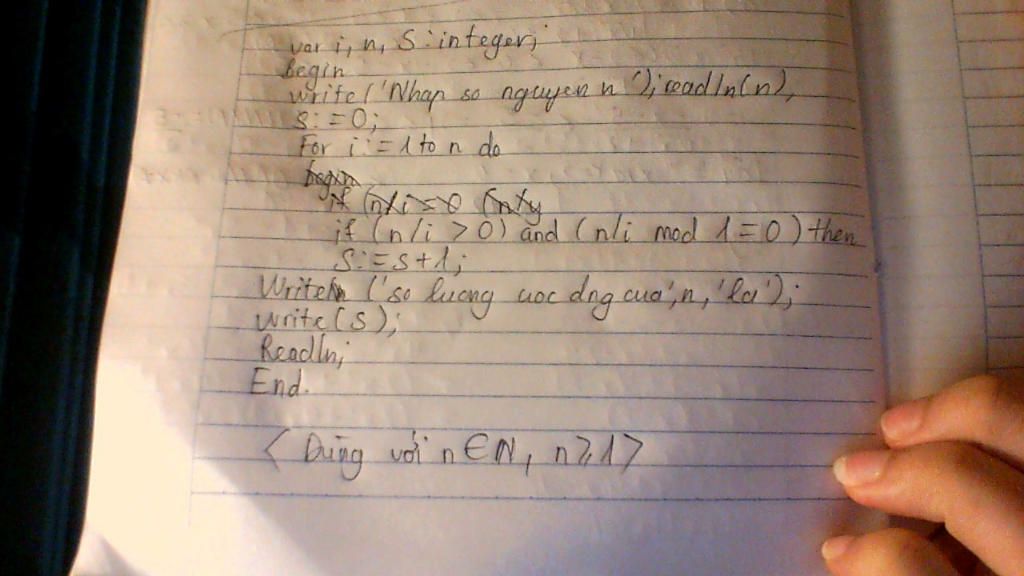 var i, n, S : integer;
begin
write ('Nhap so nguyen n '); readln(n);
s:=0;
For i:=1 to n do
begin
if (n/i >0) and (n/i mod 1=0) then
S:=s+1;
Writeln ('so luong uoc dng cua', n, 'la');
write(s);
Readln;
End.
< Dùng với n∈N, n≥1>